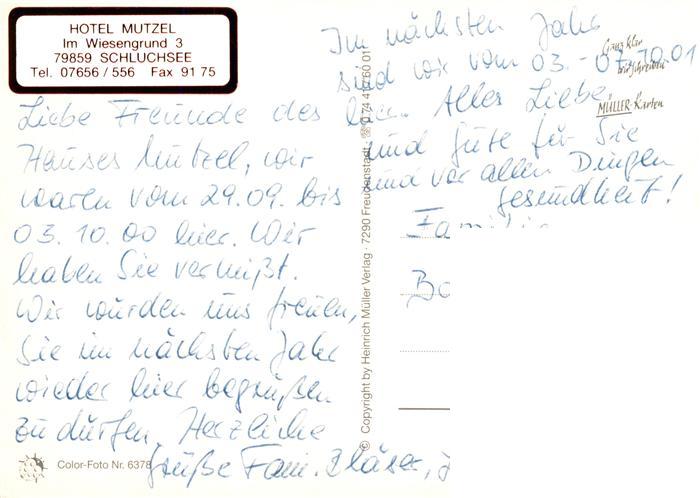 HOTEL MUTZEL
Im Wiesengrund 3
79859 SCHLUCHSEE
Tel. 07656 / 556 Fax 91 75
Liebe Freunde des
Hauses Mutzel, wir
waren vom 29.09. bis
03.10.00 hier. Wir
haben Sie vermißt.
Wir würden uns freuen,
Sie im nächsten Jahr
wieder hier begrüßen
zu dürfen. Herzliche
Grüße Fam. Bläser,
Im nächsten Jahr
sind wir vom 03. - 07.10.01
hier. Alles Liebe
und Gute für Sie
und vor allen Dingen
Gesundheit!
Ganz klar
wir schreiben
MÜLLER-Karten
Familie
Color-Foto Nr. 6378
© Copyright by Heinrich Müller Verlag · 7290 Freudenstadt ·